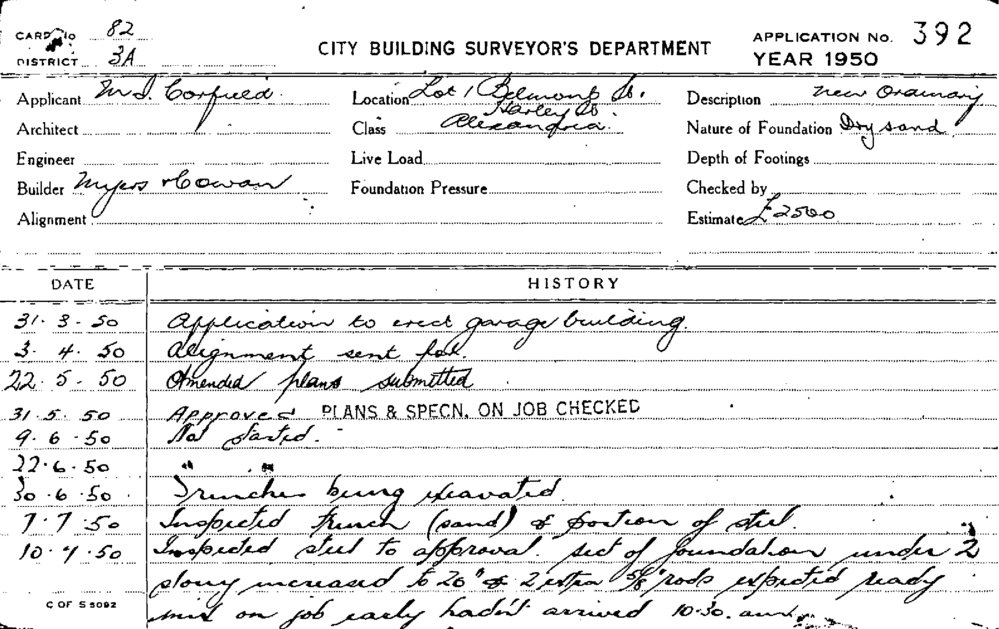 CARD No 82
DISTRICT 3A
CITY BUILDING SURVEYOR'S DEPARTMENT
APPLICATION No. 392
YEAR 1950
Applicant Mr J. Corfield.
Location Lot 1 Belmont St.
Harley St.
Description New Ordinary
Architect
Class Alexandria.
Nature of Foundation Dry sand
Engineer
Live Load
Depth of Footings
Builder Myers & Cowan
Foundation Pressure
Checked by
Alignment
Estimate £2500
DATE HISTORY
31.3.50 Application to erect garage building.
3.4.50 Alignment sent for.
22.5.50 Amended plans submitted
31.5.50 Approved PLANS & SPECN. ON JOB CHECKED
9.6.50 Not started.
22.6.50 " "
30.6.50 Trenches being excavated.
7.7.50 Inspected trench (sand) & portion of steel.
10.7.50 Inspected steel to approval. sect of foundation under 2
story increased to 20" & 2 extra 5/8" rods expected ready
mix on job early hadn't arrived 10.30. am
C OF S 5092